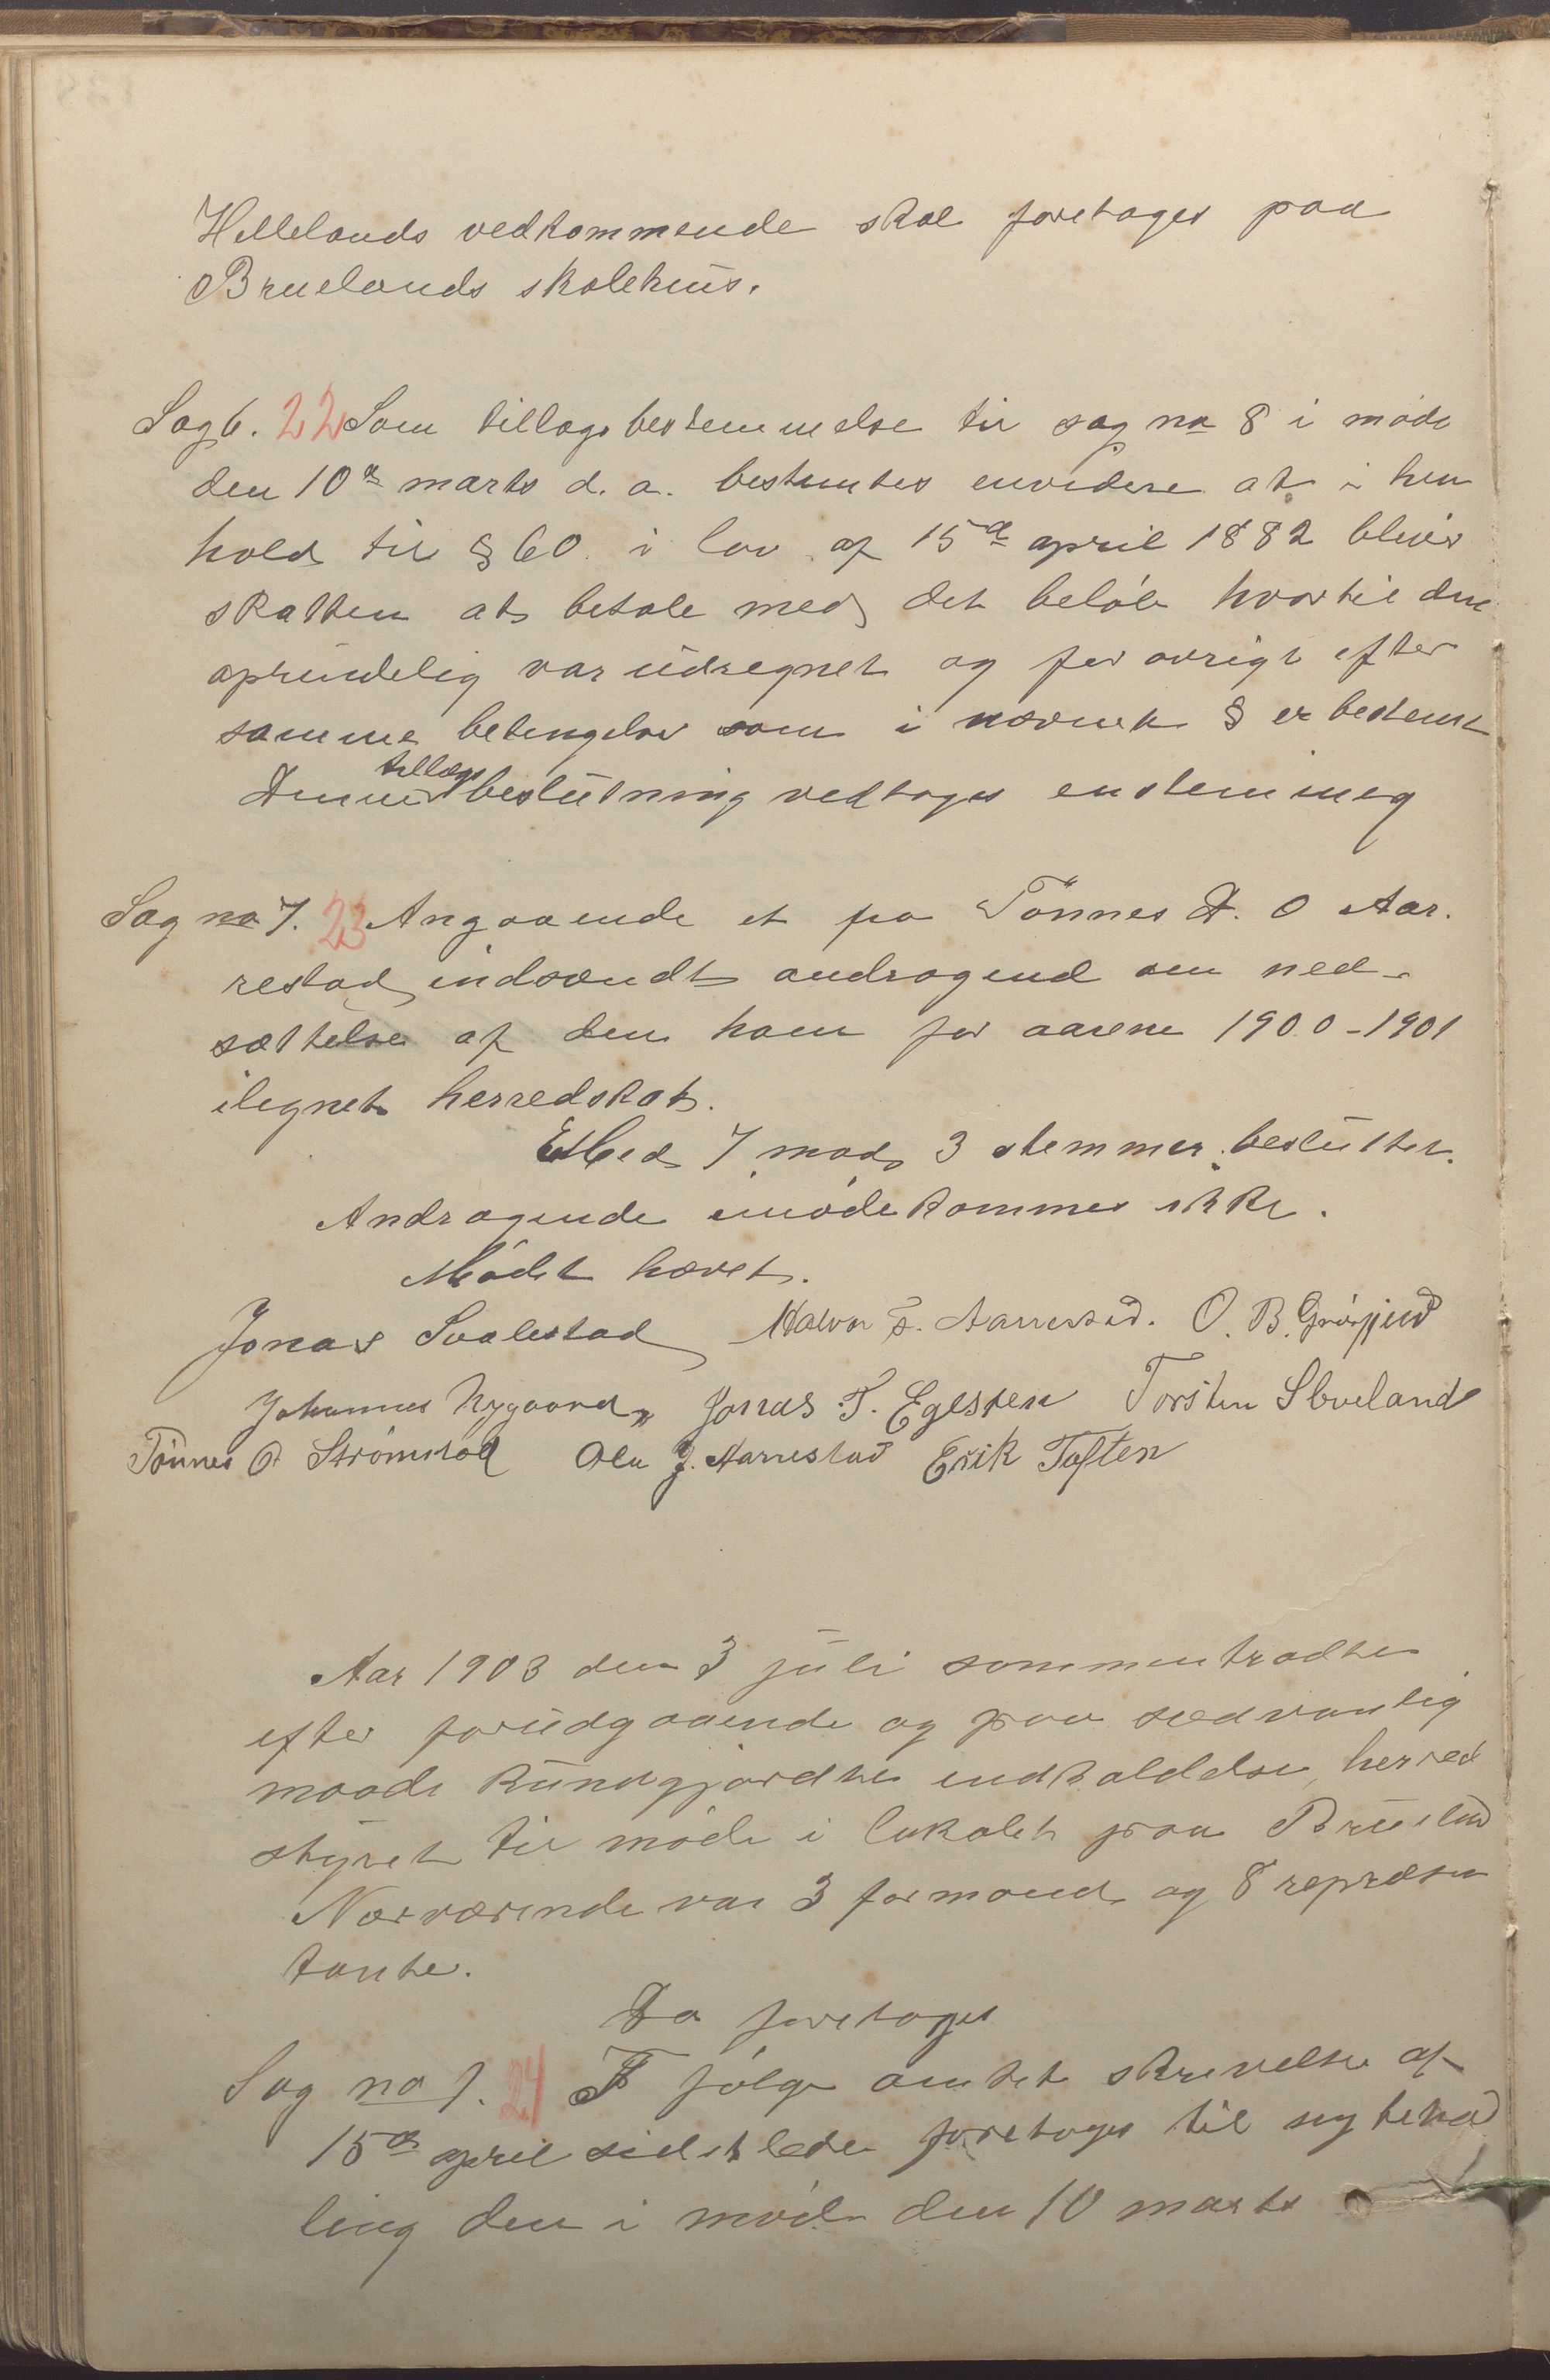 Hellelands vedkommende skal foretages paa
Bruelands skolehus.
Sag 6. 22 Som tillægsbestemmelse til sag no 8 i møde
den 10de marts d. a. bestemtes envidere at i hen
hold til § 60 i lov af 15de april 1882 bliver
skatten at betale med det beløb hvortil den
oprindelig var udregnet og for øvrigt efter
samme betingelser som i nævnte § er bestemt
Denne tillægs beslutning vedtoges enstemmig
Sag no 7. 23 Angaaende et fra Tønnes A. O Aar.
restad indsendt andragend om ned-
sættelse af den ham for aarene 1900-1901
ilegnet herredskat.
Med 7 mod 3 stemmer besluttet.
Andragende imødekommes ikke.
Mødet hævet.
Jonas Svalestad Halvor S. Aarrestad. O. B. Grøsfjeld
Johannes Nygaard Jonas T. Egesten Torsten Sleveland
Tønnes O Strømstad Ola J. Aarrestad Erik Toften
Aar 1903 den 3 juli sammentraadte
efter forudgaaende og paa sædvanlig
maade kundgjordte indkaldelse herred
styret til møde i lokalet paa Brueland
Nærværende var 3 formænd og 8 repræsen
tanter.
Da foretoges
Sag no 1. 24 I følge amtets skrivelse af
15de april sidstleden foretoges til ny behand
ling den i møde den 10 marts